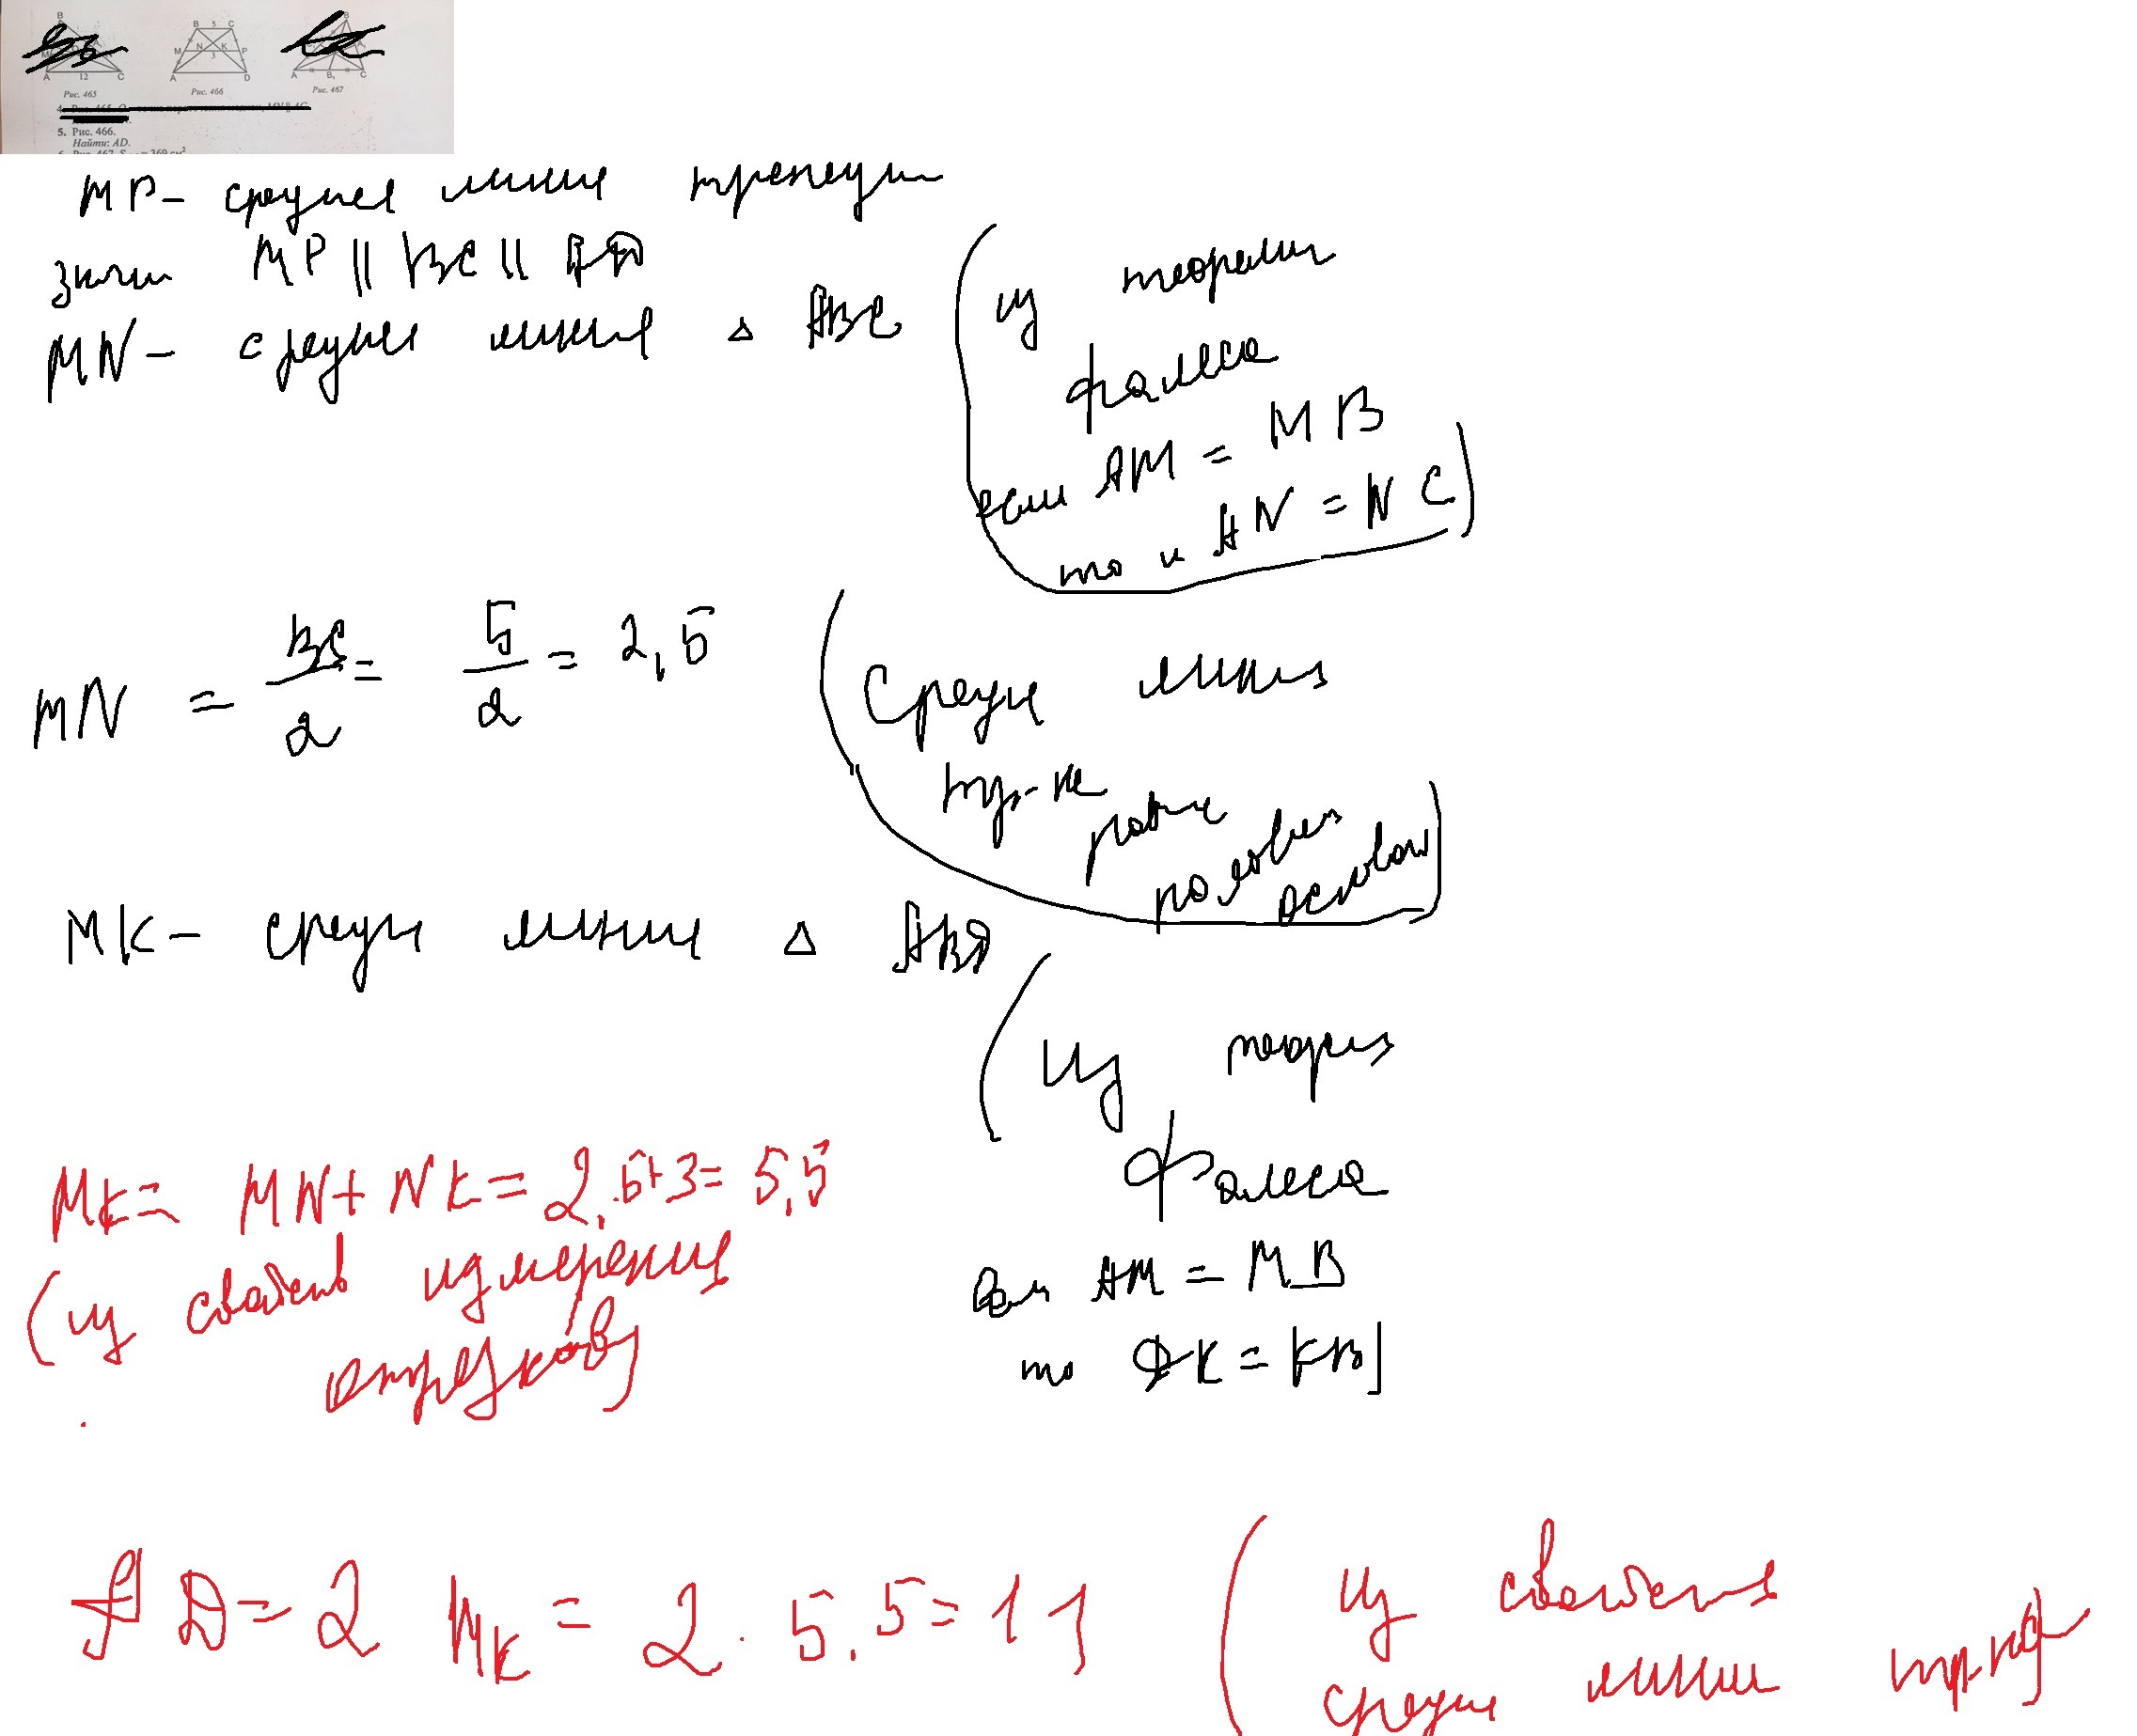 B 5 C
M N K P
3
A D
A 12 C
A B₁ C
Рис. 465
Рис. 466
Рис. 467
5. Рис. 466.
Найти: AD.
MP - средняя линия трапеции
значит MP || BC || AD
MN - средняя линия △ ABC
(из теоремы
Фалеса
если AM = MB
то и AN = NC)
MN = BC/2 = 5/2 = 2,5
(Средн линия
тр-ка
равна
половин
основан)
MK - средн линия △ ABD
(Из теорем
Фалеса
если AM = MB
то DK = KB)
MK = MN + NK = 2,5 + 3 = 5,5
(из свойств измерения
отрезков)
AD = 2 MK = 2 · 5,5 = 11
(из свойства
средн линии тр-ка)